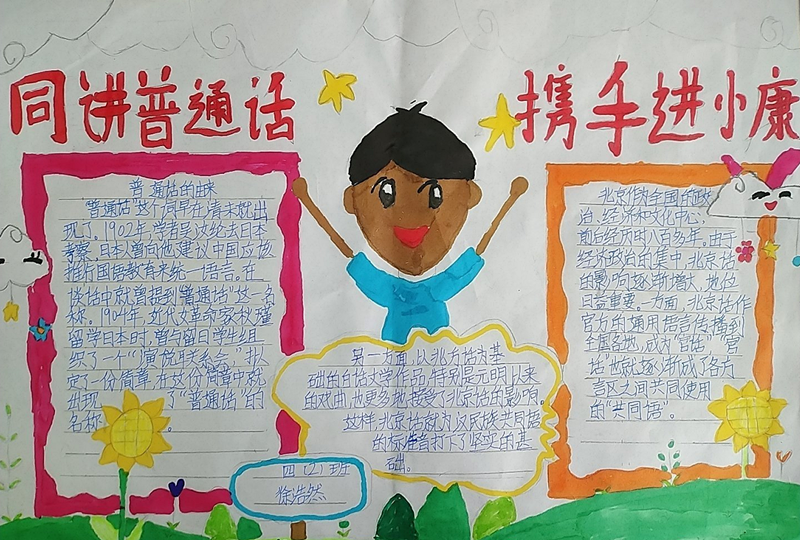 同讲普通话
携手进小康
普通话的由来
"普通话"这个词早在清末就出
现了。1902年,学者吴汝纶去日本
考察,日本人曾向他建议中国应该
推行国语教育来统一语言。在
谈话中就曾提到"普通话"这一名
称。1904年,近代女革命家秋瑾
留学日本时,曾与留日学生组
织了一个"演说联系会",拟
定了一份简章,在这份简章中就
出现了"普通话"的
名称。
另一方面,以北方话为基
础的白话文学作品,特别是元明以来
的戏曲,也更多地接受了北京话的影响。
这样,北京话就为汉民族共同语
的标准音打下了坚实的基
础。
四(2)班
徐浩然
北京作为全国的政
治、经济和文化中心,
前后经历时八百多年。由于
经济政治的集中,北京话
的影响逐渐增大,地位
日益重要。一方面,北京话作
官方的通用语言传播到
全国各地,成为"官话""官
话"也就逐渐成了各方
言区之间共同使用
的"共同语"。